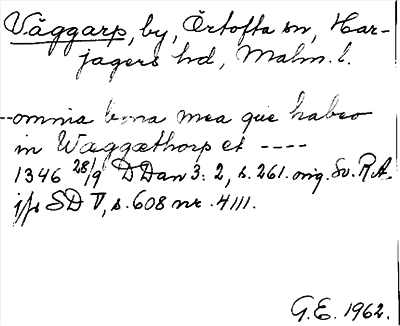 Väggarp, by, Örtofta sn, Har-
jagers hd, Malm. l.
--omnia bona mea que habeo
in Waggæthorp et ----
1346 28/9 DDan 3: 2, s. 261. orig. Sv. R.A.
jfr SD V, s. 608 nr. 4111.
G.E. 1962.